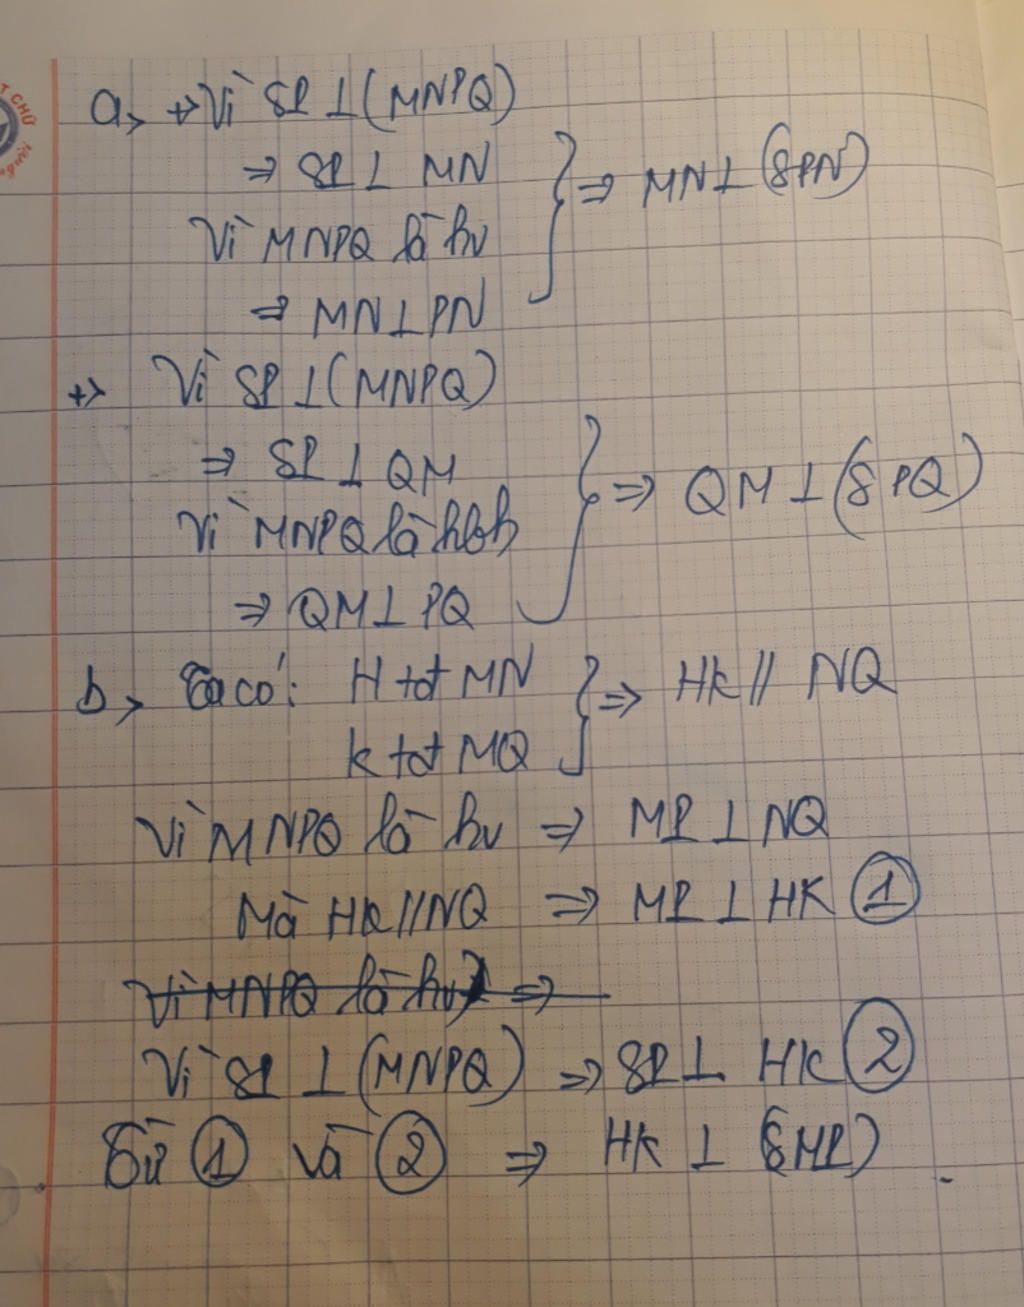 T CHỮ
người
a, +> Vì SP ⊥ (MNPQ)
⇒ SP ⊥ MN
Vì MNPQ là hv
⇒ MN ⊥ PN
} ⇒ MN ⊥ (SPN)
+> Vì SP ⊥ (MNPQ)
⇒ SP ⊥ QM
Vì MNPQ là
⇒ QM ⊥ PQ
} ⇒ QM ⊥ (SPQ)
b, Ta có: H tđ MN
K tđ MQ
} ⇒ HK // NQ
Vì MNPQ là hv ⇒ MP ⊥ NQ
Mà HK // NQ ⇒ MP ⊥ HK ①
Vì MNPQ là hv ⇒
Vì SP ⊥ (MNPQ) ⇒ SP ⊥ HK ②
Từ ① và ② ⇒ HK ⊥ (SMP)